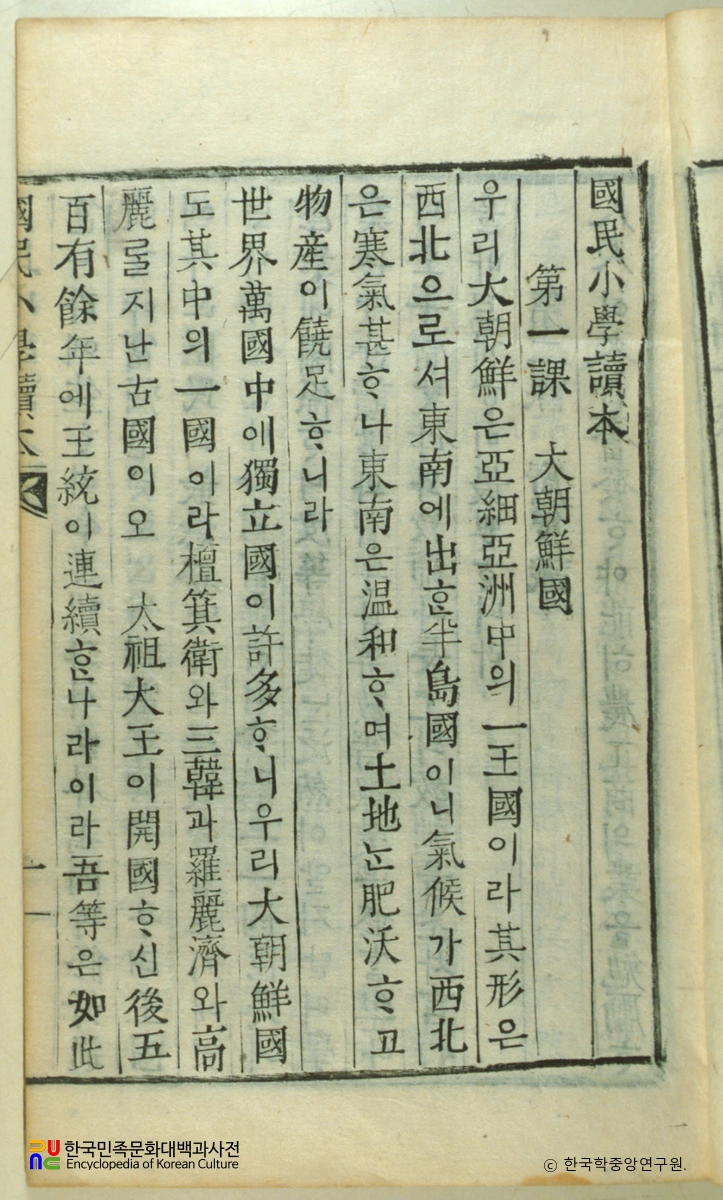 國民小學讀本
第一課 大朝鮮國
우리大朝鮮은亞細亞洲中의一王國이라其形은
西北으로셔東南에出ᄒᆞᆫ半島國이니氣候가西北
은寒氣甚ᄒᆞ나東南은溫和ᄒᆞ며土地ᄂᆞᆫ肥沃ᄒᆞ고
物産이饒足ᄒᆞ니라
世界萬國中에獨立國이許多ᄒᆞ니우리大朝鮮國
도其中의一國이라檀箕衛와三韓과羅麗濟와高
麗를지난古國이오 太祖大王이開國ᄒᆞ신後五
百有餘年에王統이連續ᄒᆞᆫ나라이라吾等은如此
國民小學讀本
一
한국민족문화대백과사전
Encyclopedia of Korean Culture
ⓒ 한국학중앙연구원.